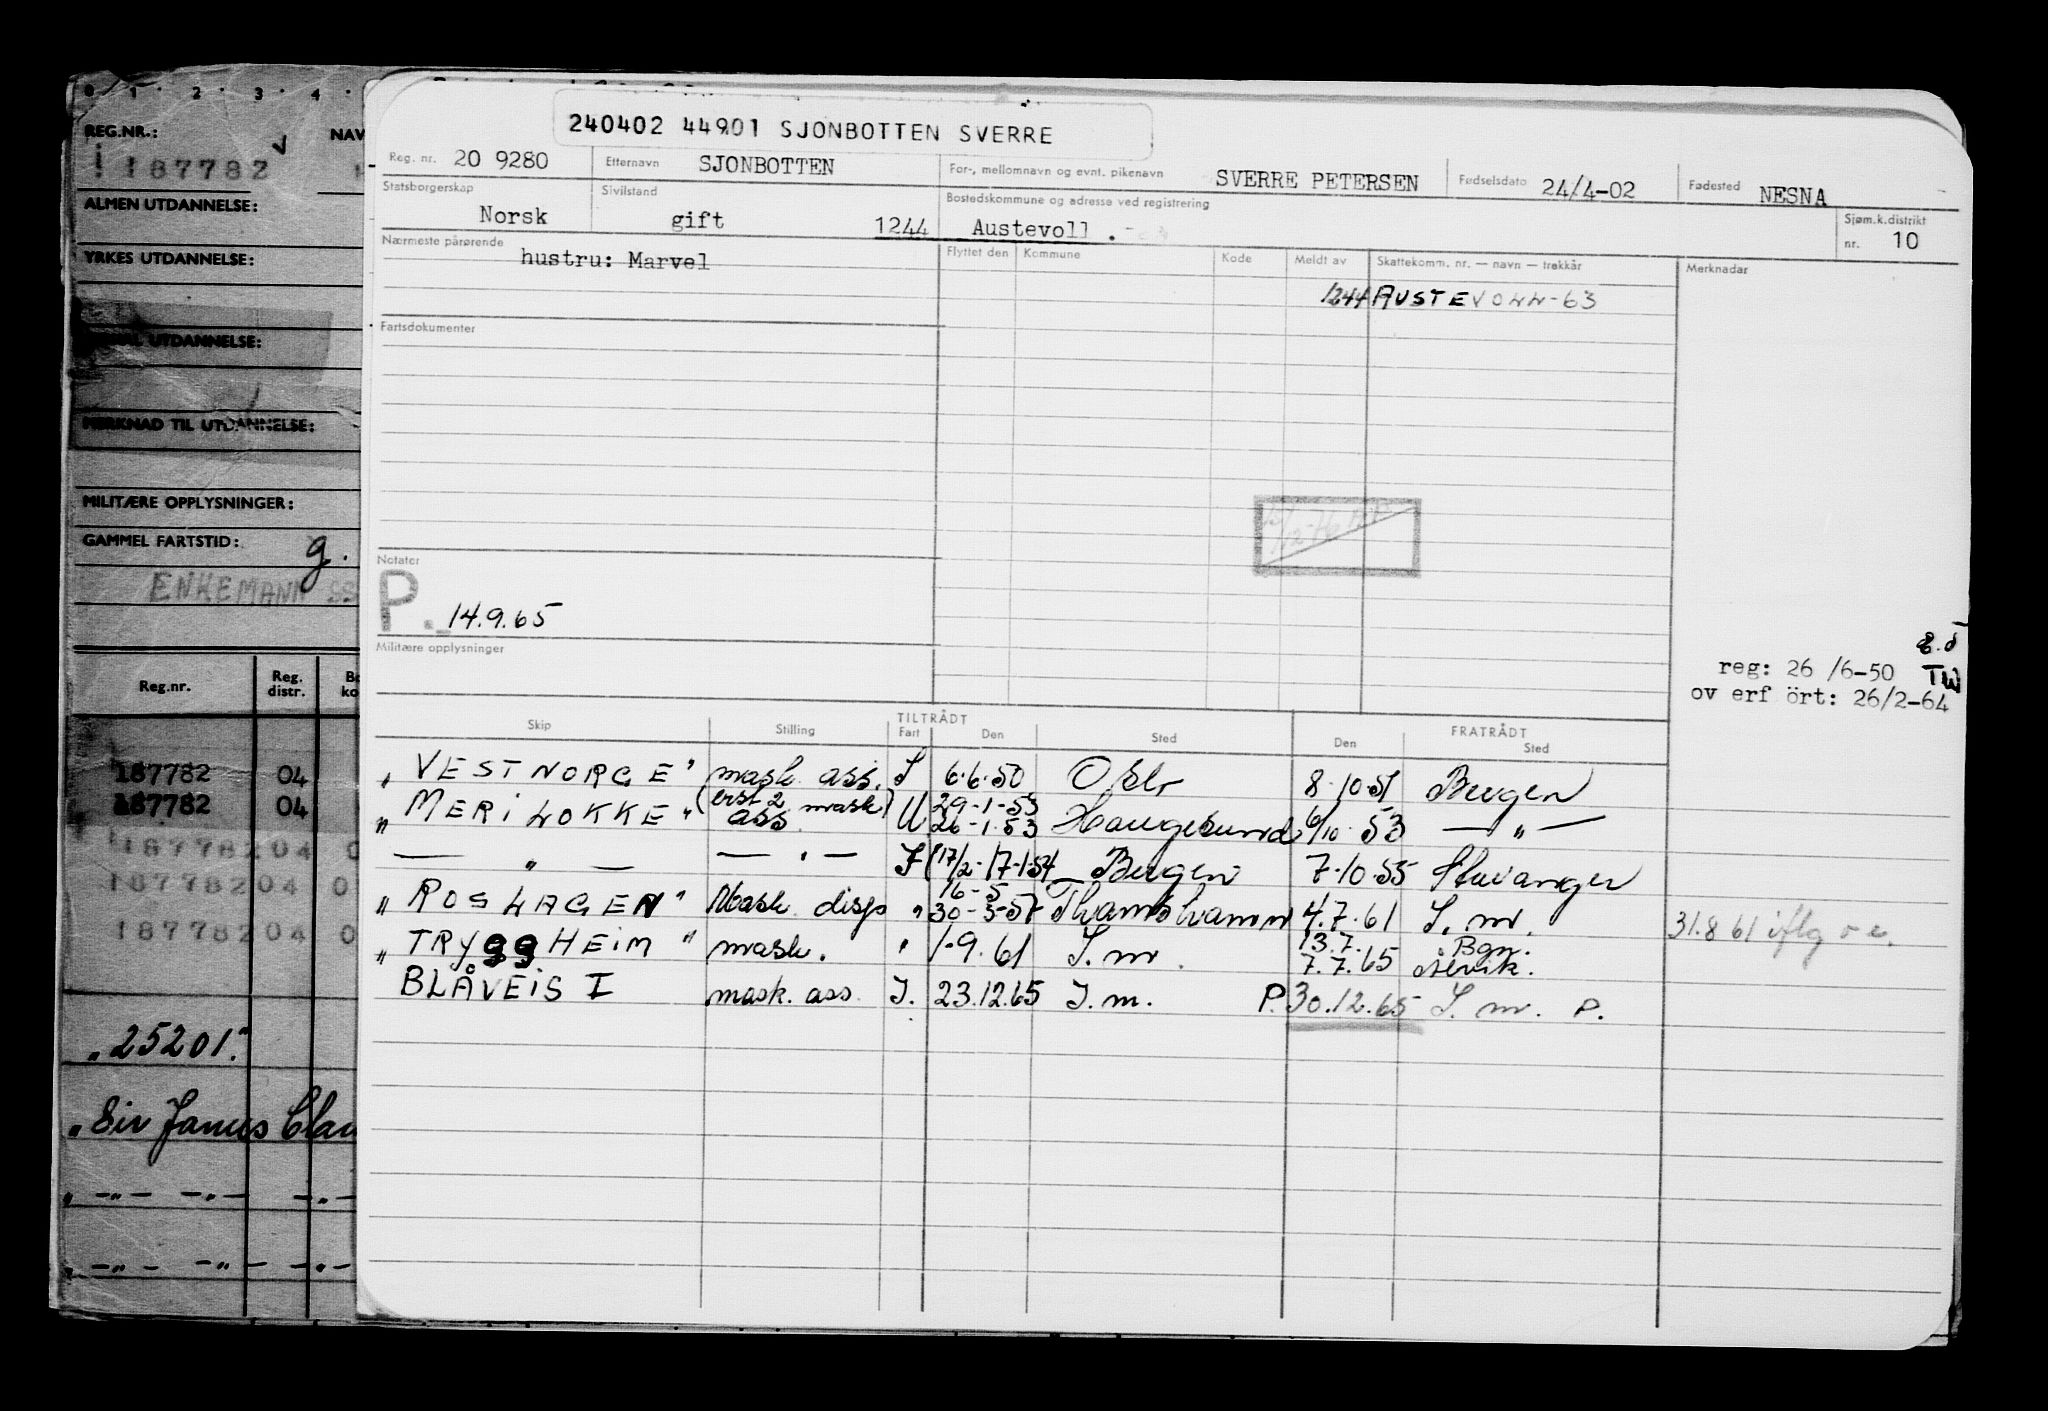 0 1 2 3 4
REG.NR.: NAV
187782
ALMEN UTDANNELSE:
YRKES UTDANNELSE:
UTDANNELSE:
MERKNAD TIL UTDANNELSE:
MILITÆRE OPPLYSNINGER:
GAMMEL FARTSTID: g.
ENKEMANN
Reg.nr. Reg. distr. Bo ko
187782 04
187782 04
187782 04 0
187782 04 0
187782 04 0
"25201."
"Sir James Clar
" — " — — " — — " —
" — " — — " — — " —
240402 44901 SJONBOTTEN SVERRE
Reg. nr. 20 9280 Etternavn SJONBOTTEN For-, mellomnavn og evnt. pikenavn SVERRE PETERSEN Fødselsdato 24/4-02 Fødested NESNA
Statsborgerskap Norsk Sivilstand gift 1244 Bostedskommune og adresse ved registrering Austevoll . Sjøm.k.distrikt nr. 10
Nærmeste pårørende hustru: Marvel Flyttet den Kommune Kode Meldt av Skattekomm. nr. — navn — trekkår Merknader
1244 AUSTEVOLL-63
Fartsdokumenter
Notater
P. 14.9.65
Militære opplysninger
reg: 26 /6-50 TW
ov erf ört: 26/2-64
TILTRÅDT FRATRÅDT
Skip Stilling Fart Den Sted Den Sted
"VESTNORGE" mask. ass. I 6.6.50 Oslo 8.10.51 Bergen
"MERILOKKE" (erst 2 mask) ass U 29-1-53 26-1.53 Haugesund 6/10.53 — " —
— " — — " — I (17/2- 17-1-54 Bergen 7.10.55 Stavanger
"ROSLAGEN" Mask. disp " 16-5 30-3-57 4.7.61 I. m. 31.8 61 iflg
"TRYggHEIM" mask. " 1-9.61 I. m. 13.7. 7.7.65 Bgn.
BLÅVEIS I mask. ass. I. 23.12.65 I. m. P. 30.12.65 I. m. P.